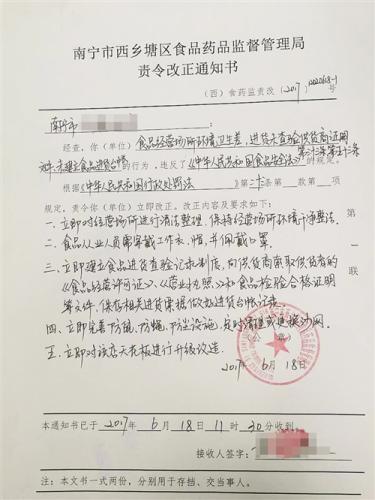 南宁市西乡塘区食品药品监督管理局
责令改正通知书
（西）食药监责改（2017）
南宁市
经查，你（单位）食品经营场所环境卫生差，进货未查验供货商证明
文件，未建立食品进货台帐的行为，违反了《中华人民共和国食品安全法》第三十三条第五十三条的规定。
根据《中华人民共和国行政处罚法》第二十三条第 款第 项
规定，责令你（单位）立即改正。改正内容及要求如下：
一、立即对经营场所进行清洁整理，保持经营场所环境干净整洁。
二、食品从业人员需穿戴工作衣、帽，并佩戴口罩。
三、立即建立食品进货查验记录制度，向供货商索取供货商的
《食品经营许可证》、《营业执照》和食品检验合格证明
等文件，保存相关进货票据做好进货台帐记录。
四、立即完善防鼠、防蝇、防尘设施，及时清理或更换纱网。
五、立即对该店天花板进行升级改造。
（公 章）
2017年6月18日
第一联
本通知书已于 2017 年 6 月 18 日 11 时 30 分收到。
接收人签字：
注：本文书一式两份，分别用于存档、交当事人。